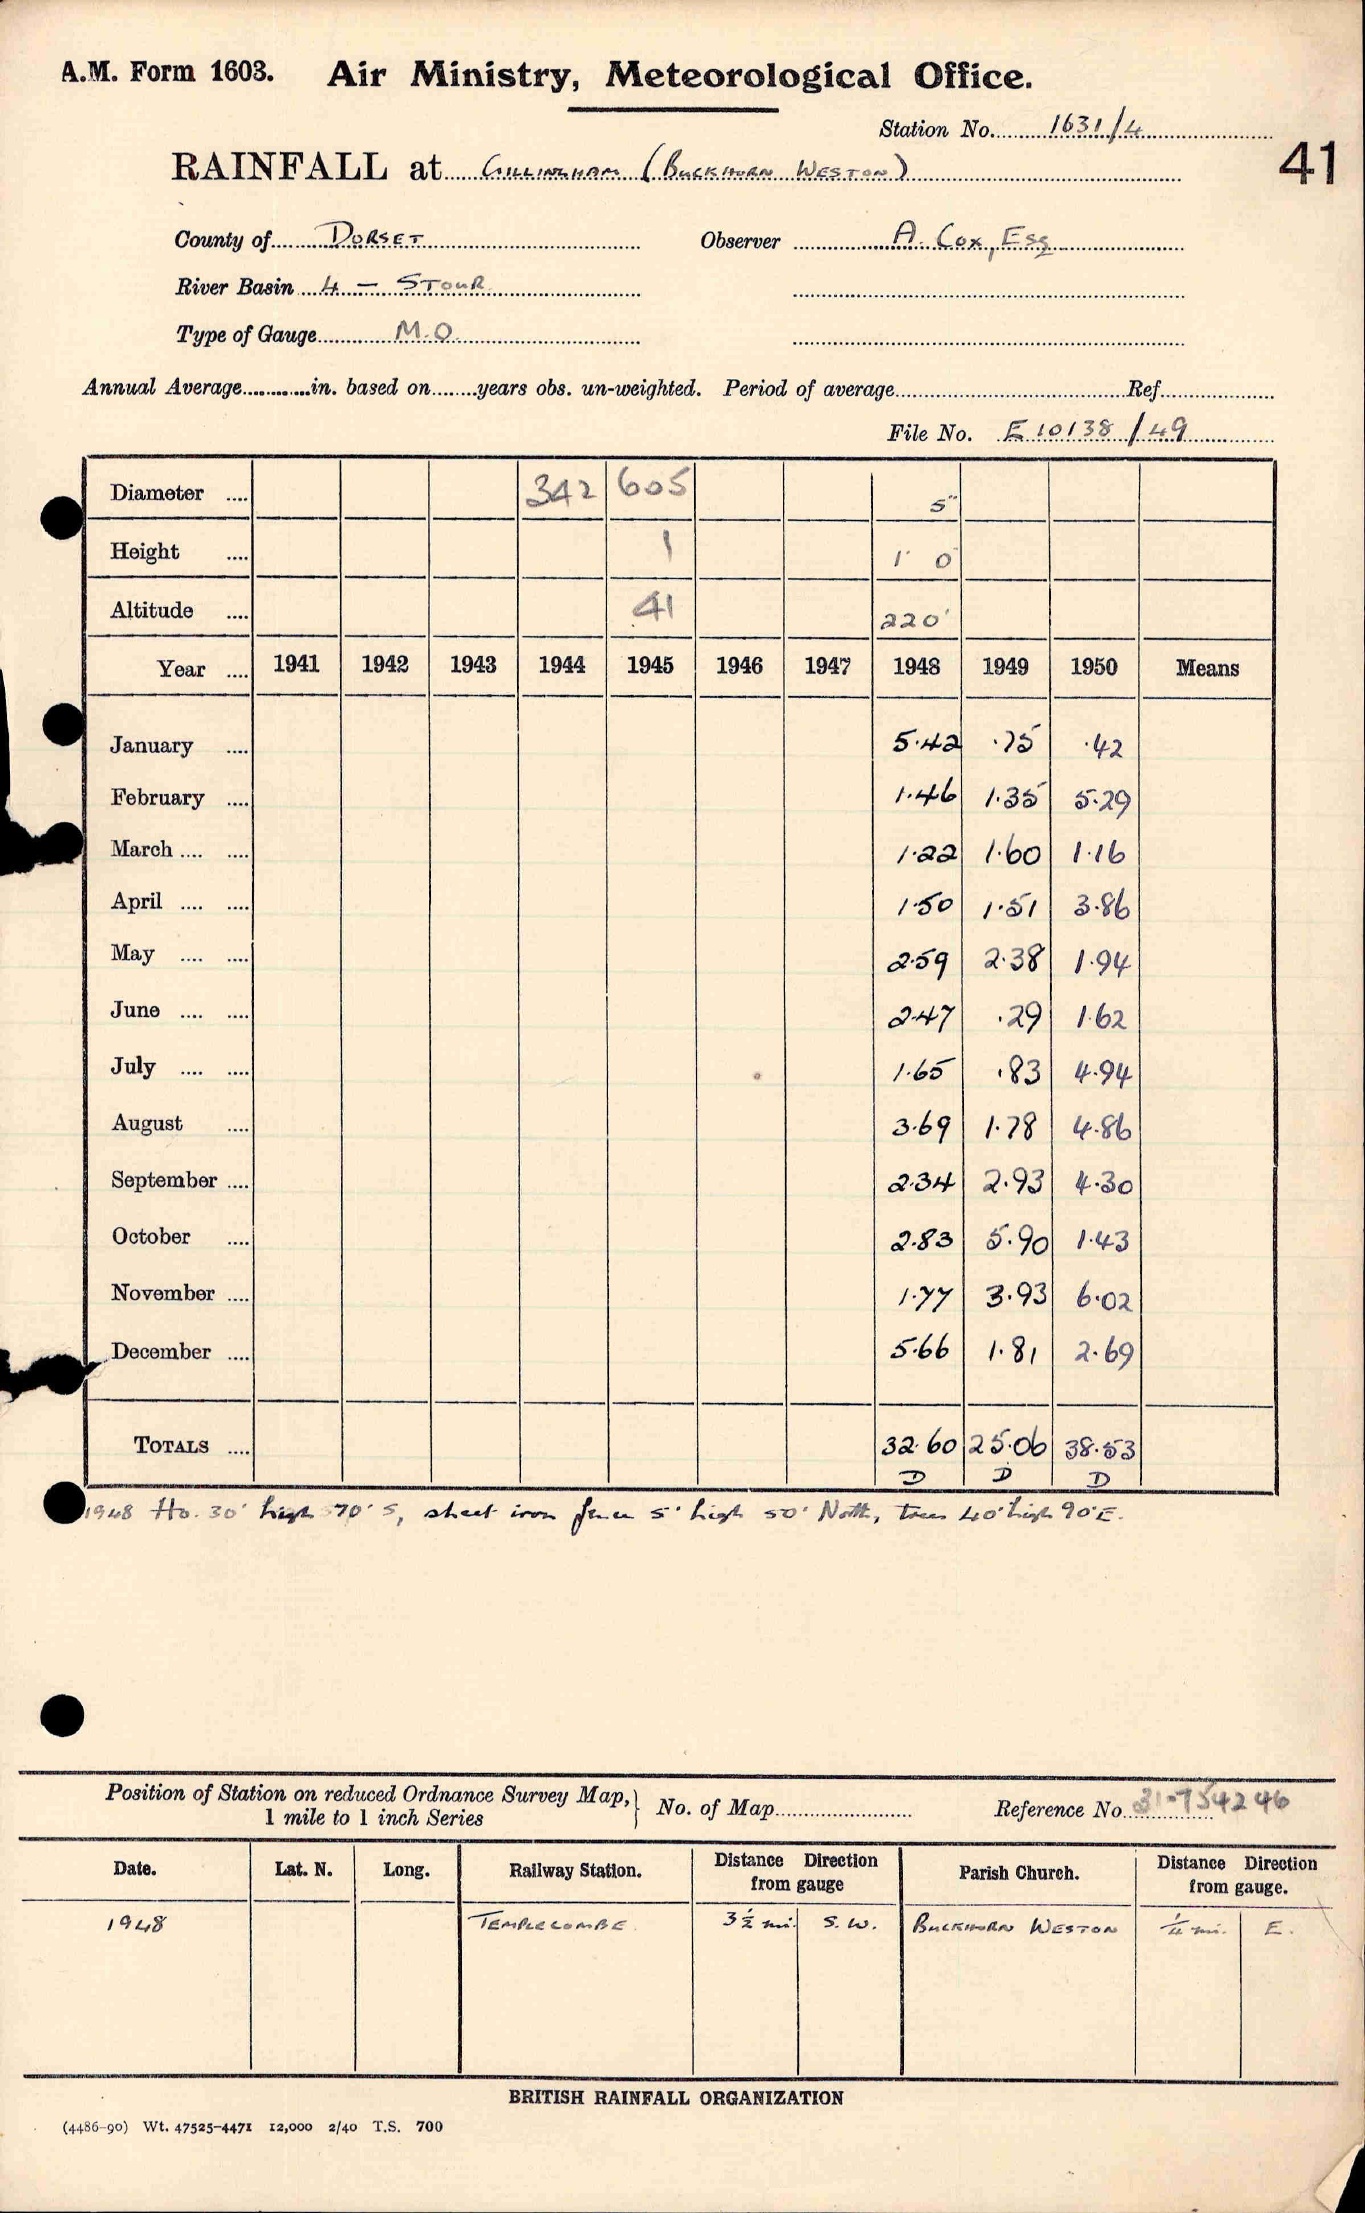 A.M. Form 1603. Air Ministry, Meteorological Office.
Station No. 1631/4
41
RAINFALL at GILLINGHAM (BUCKHORN WESTON)
County of DORSET Observer A. Cox, Esq
River Basin 4 — STOUR
Type of Gauge M.O.
Annual Average............in. based on........years obs. un-weighted. Period of average........ Ref........
File No. E 10138/49
Diameter .... 342 605 5"
Height .... 1 1' 0"
Altitude .... 41 220'
Year .... 1941 1942 1943 1944 1945 1946 1947 1948 1949 1950 Means
January .... 5.42 .75 .42
February .... 1.46 1.35 5.29
March .... .... 1.22 1.60 1.16
April .... .... 1.50 1.51 3.86
May .... .... 2.59 2.38 1.94
June .... .... 2.47 .29 1.62
July .... .... 1.65 .83 4.94
August .... 3.69 1.78 4.86
September .... 2.34 2.93 4.30
October .... 2.83 5.90 1.43
November .... 1.77 3.93 6.02
December .... 5.66 1.81 2.69
TOTALS .... 32.60 25.06 38.53
D D D
1948 Ho. 30' high 70' S, sheet iron fence 5' high 50' North, trees 40' high 90' E.
Position of Station on reduced Ordnance Survey Map, 1 mile to 1 inch Series } No. of Map........ Reference No. 31-754246
Date. Lat. N. Long. Railway Station. Distance Direction from gauge Parish Church. Distance Direction from gauge.
1948 TEMPLECOMBE 3½ mi. S.W. BUCKHORN WESTON ¼ mi. E.
BRITISH RAINFALL ORGANIZATION
(4486-90) Wt. 47525-4471 12,000 2/40 T.S. 700